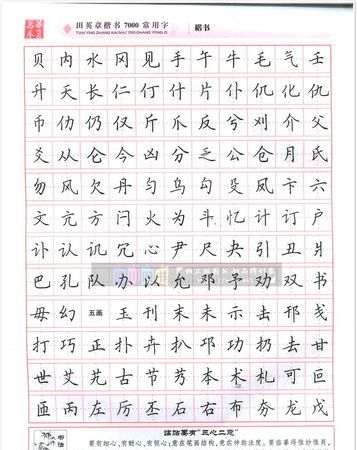 田英章楷书 7000 常用字
TIAN YING ZHANG KAI SHU 7000 CHANG YONG ZI
楷书
贝内水冈见手午牛毛气壬
升夭长仁仃什片仆仉化仇
币仂仍仅斤爪反兮刈介父
爻从仑今凶分乏公仓月氏
勿风欠丹匀乌勾殳凤卞六
文亢方闩火为斗忆计订户
讣认讥冗心尹尺夬引丑爿
巴孔队办以允邓予劝双书
毋幻 五画 玉刊末未示击邗戋
打巧正扑卉扒邛功扔去甘
世艾艽古节艿本术札可叵
匝丙左厉丕石右布夯龙戊
临帖要有“三心二意”
要有细心、有耐心、有恒心；意在笔画结构，意在神韵法度。要临摹得惟妙惟肖。